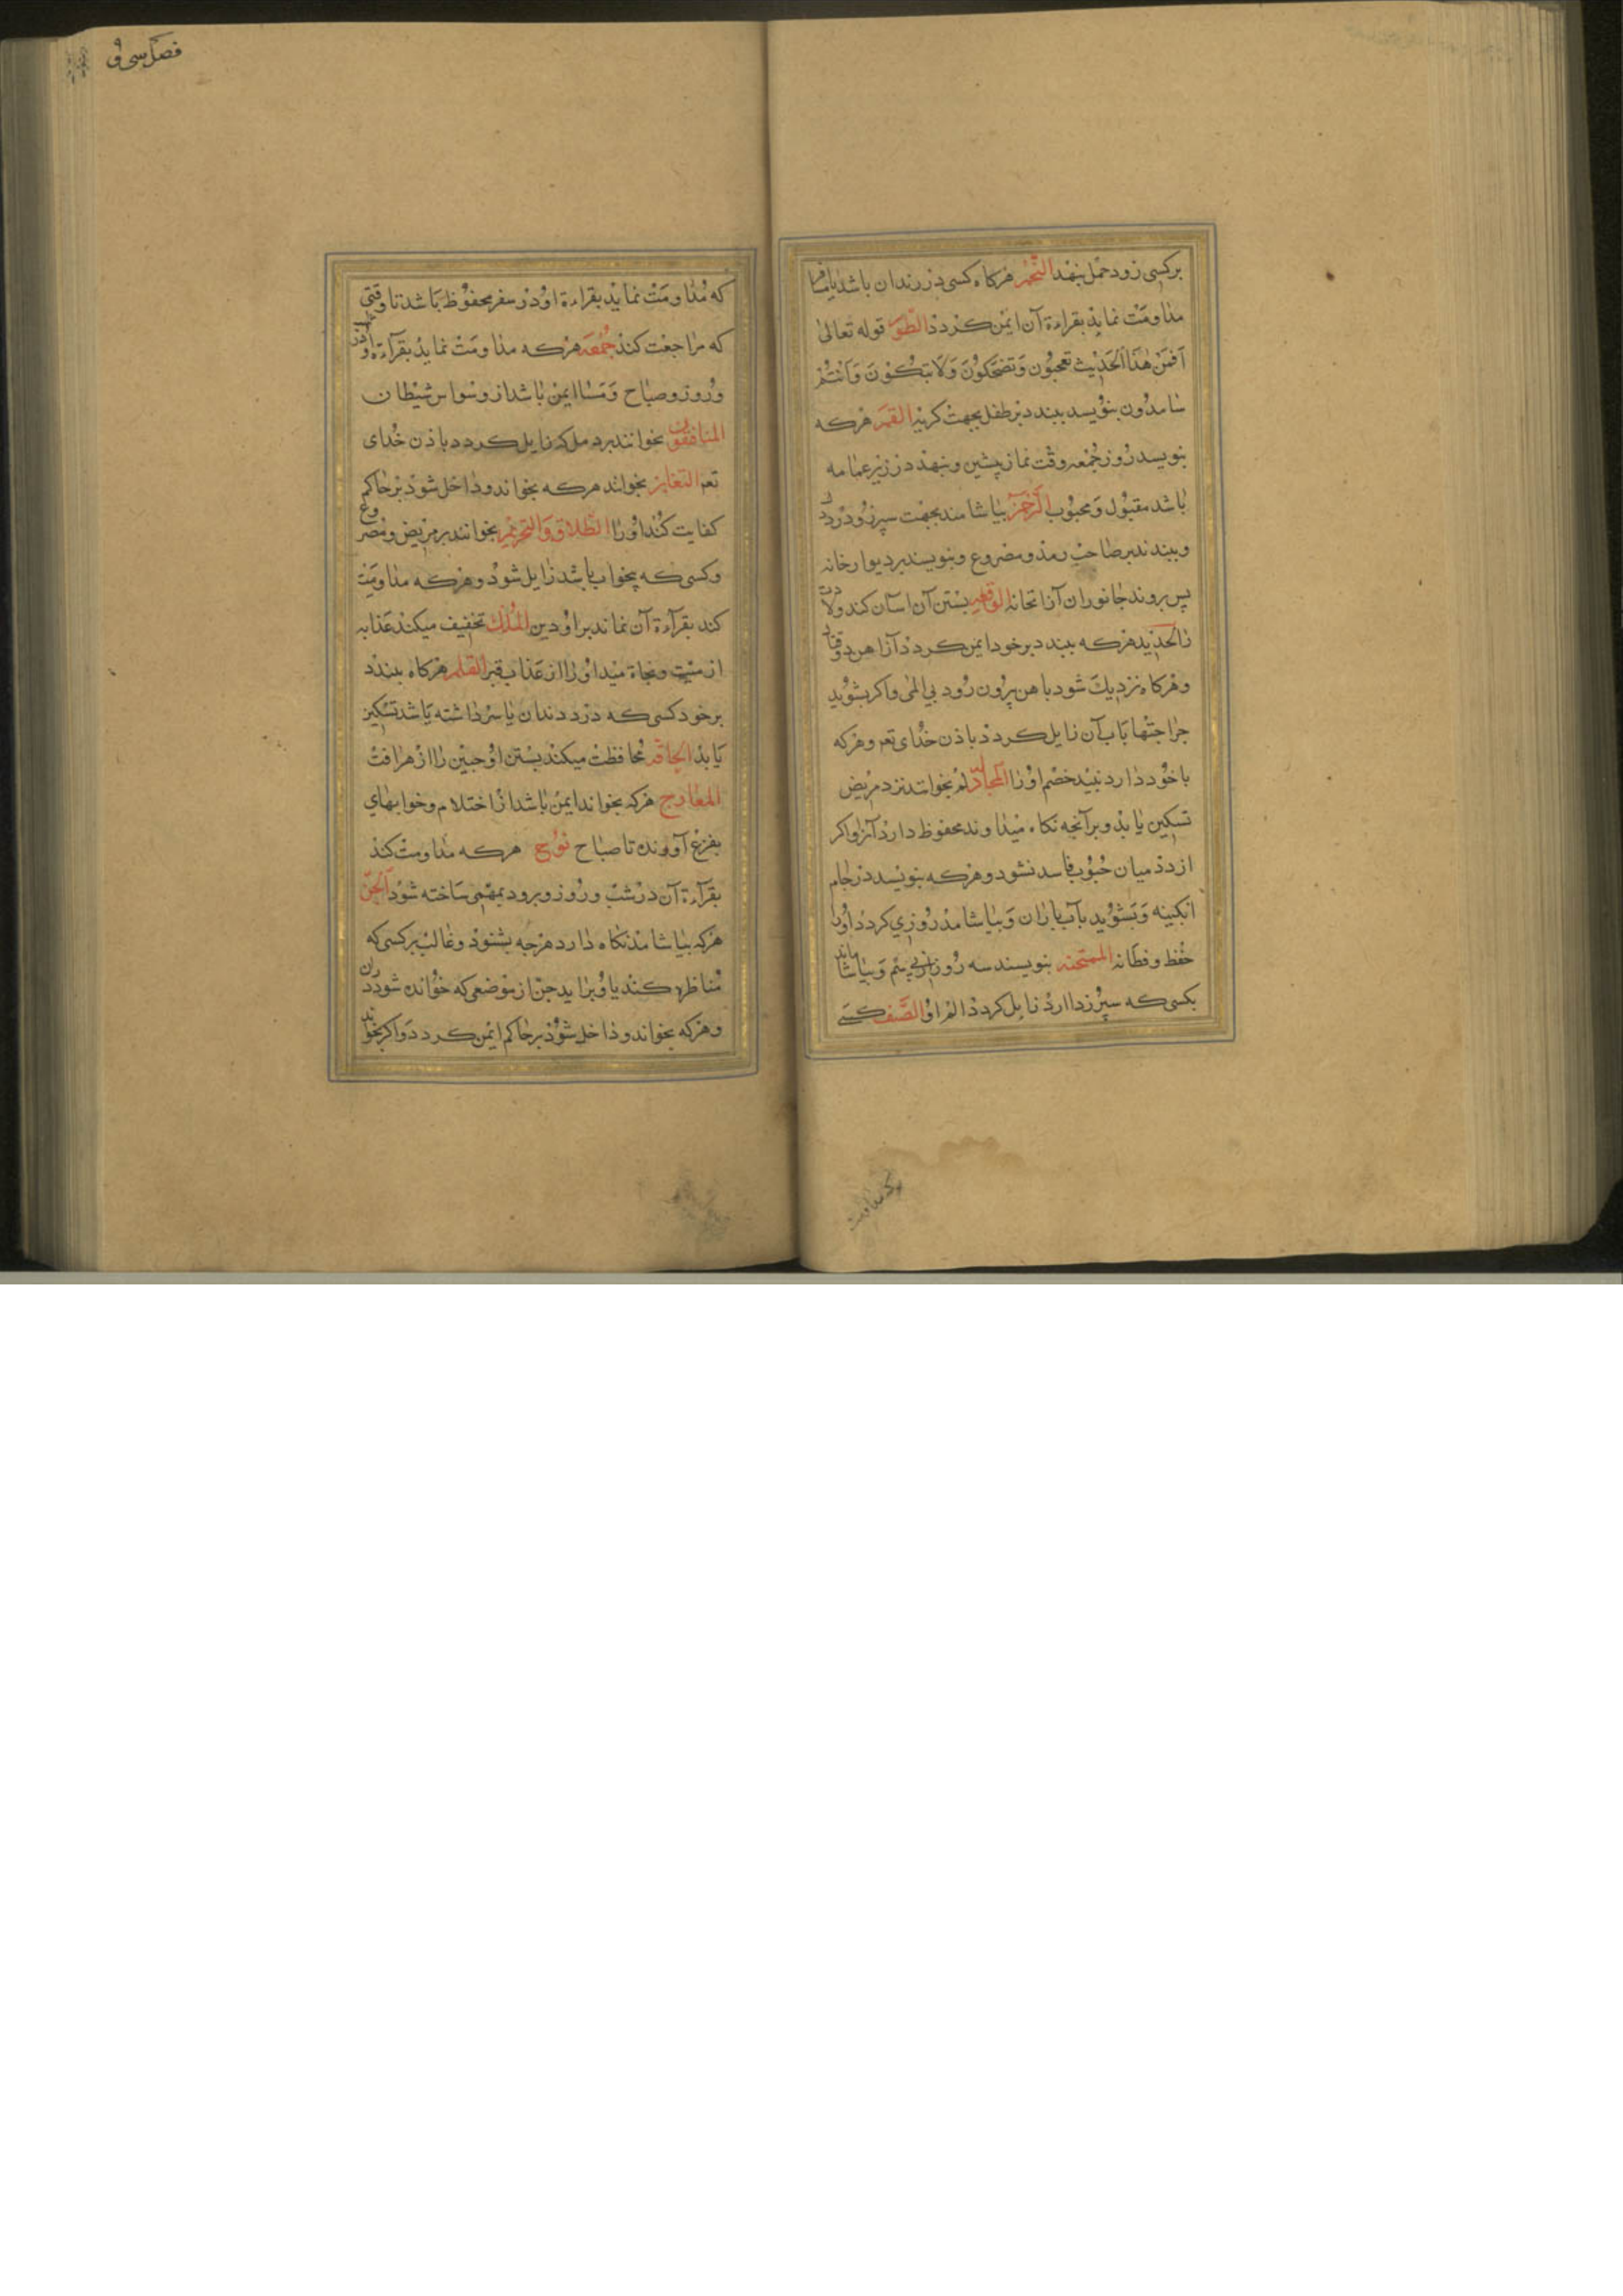 بر کسی زود حمل بنهد النجم هرکاه کسی در زندان باشد یا مسافر
مداومت نماید بقراءة آن ایمن کردد الطور قوله تعالی
اَفَمِنْ هٰذَا الْحَدِیثِ تَعْجَبُونَ وَتَضْحَکُونَ وَلَا تَبْکُونَ وَاَنْتُمْ
سَامِدُونَ بنویسد ببندد بر طفل بجهت کریه القمر هرکه
بنویسد روز جمعه وقت نماز پیشین و بنهد در زیر عمامه
باشد مقبول و محبوب الرحمن بیاشامند بجهت سپرز و درد دل
و ببندند بر صاحب رمد و مصروع و بنویسند بر دیوار خانه
پس بروند جانوران آن خانه الواقعه بستن آن اسان کند ولادت
را الحدید هرکه ببندد بر خود ایمن کردد از آهن در وقتال
و هرکاه نزدیک شود با هن برون رود بی المی و اکر بشوید
جراحتها باب آن زایل کردد باذن خدای تعم و هرکه
با خود دارد نبیند خصم او را المجادله بخوانند نزد مریض
تسکین یابد و بر آنجه نکاه میدارند محفوظ دارد آنرا و اکر
از دد میان حبوب فاسد نشود و هرکه بنویسد در جام
ابکینه و بشوید باب باران و بیاشامد روزی کردد او را
حفظ و فطانه الممتحنه بنویسند سه روز و بیاشامند
بکسی که سپرز دارد زایل کردد الم او الصّف کسی
فصل سی و
که مداومت نماید بقراءة او در سفر محفوظ باشد تا وقتی
که مراجعت کند جُمعَه هرکه مداومت نماید بقراءة او در شب
و روز و صباح و مسا ایمن باشد از وسواس شیطان
المنافقون بخوانند بر دمل که زایل کردد باذن خدای
تعم التغابن بخوانند هرکه بخواند و داخل شود بر حاکم
کفایت کند او را الطلاق والتحریم بخوانند بر مریض و مصروع
و کسی که بیخواب باشد زایل شود و هرکه مداومت
کند بقراءة آن نماند بر او دین الملک تخفیف میکند عذاب
از میّت و نجاة میدهد او را از عذاب قبر القلم هرکاه ببندد
بر خود کسی که درد دندان یا سر داشته باشد تسکین
یابد الحاقه محافظت میکند بستن او جنین را از هر آفت
المعارج هرکه بخواند ایمن باشد از احتلام و خوابهای
بفزع آورنده تا صباح نوح هرکه مداومت کند
بقراءة آن در شب و روز و برود بمهمی ساخته شود الجن
هرکه بیاشامد نکاه دارد هرجه بشنود و غالب بر کسی که
مناظره کند با او براید جن از موضعی که خوانده شود دران
و هرکه بخواند و داخل شود بر حاکم ایمن کردد و اکر بخواند